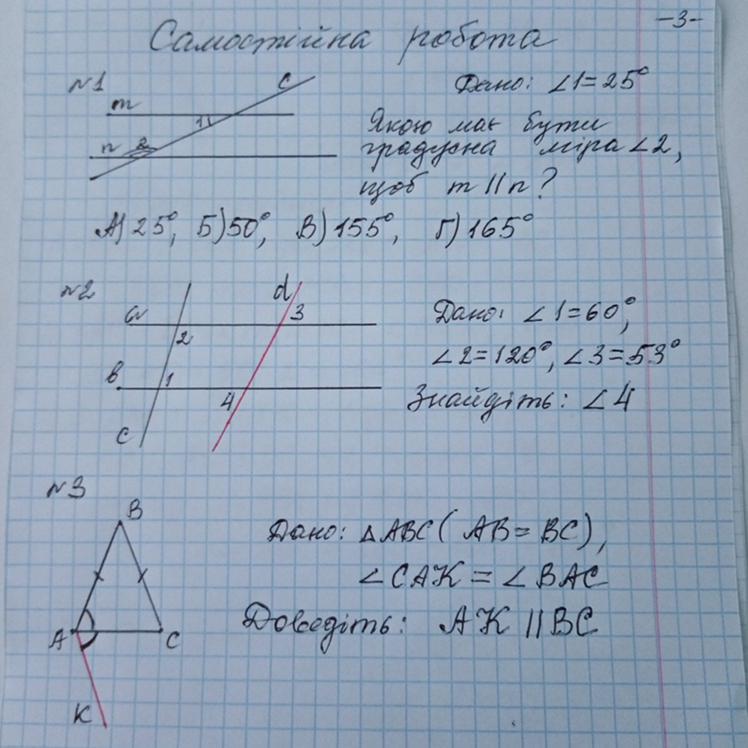 -3-
Самостійна робота
№1
Дано: ∠1=25°
m
c
1
n
2
Якою має бути
градусна міра ∠2,
щоб m || n?
А) 25°, Б) 50°, В) 155°, Г) 165°
№2
a
d
3
2
Дано: ∠1=60°,
∠2=120°, ∠3=53°
в
1
4
Знайдіть: ∠4
c
№3
B
Дано: ΔABC (AB=BC),
∠CAK = ∠BAC
A
C
Доведіть: AK || BC
K